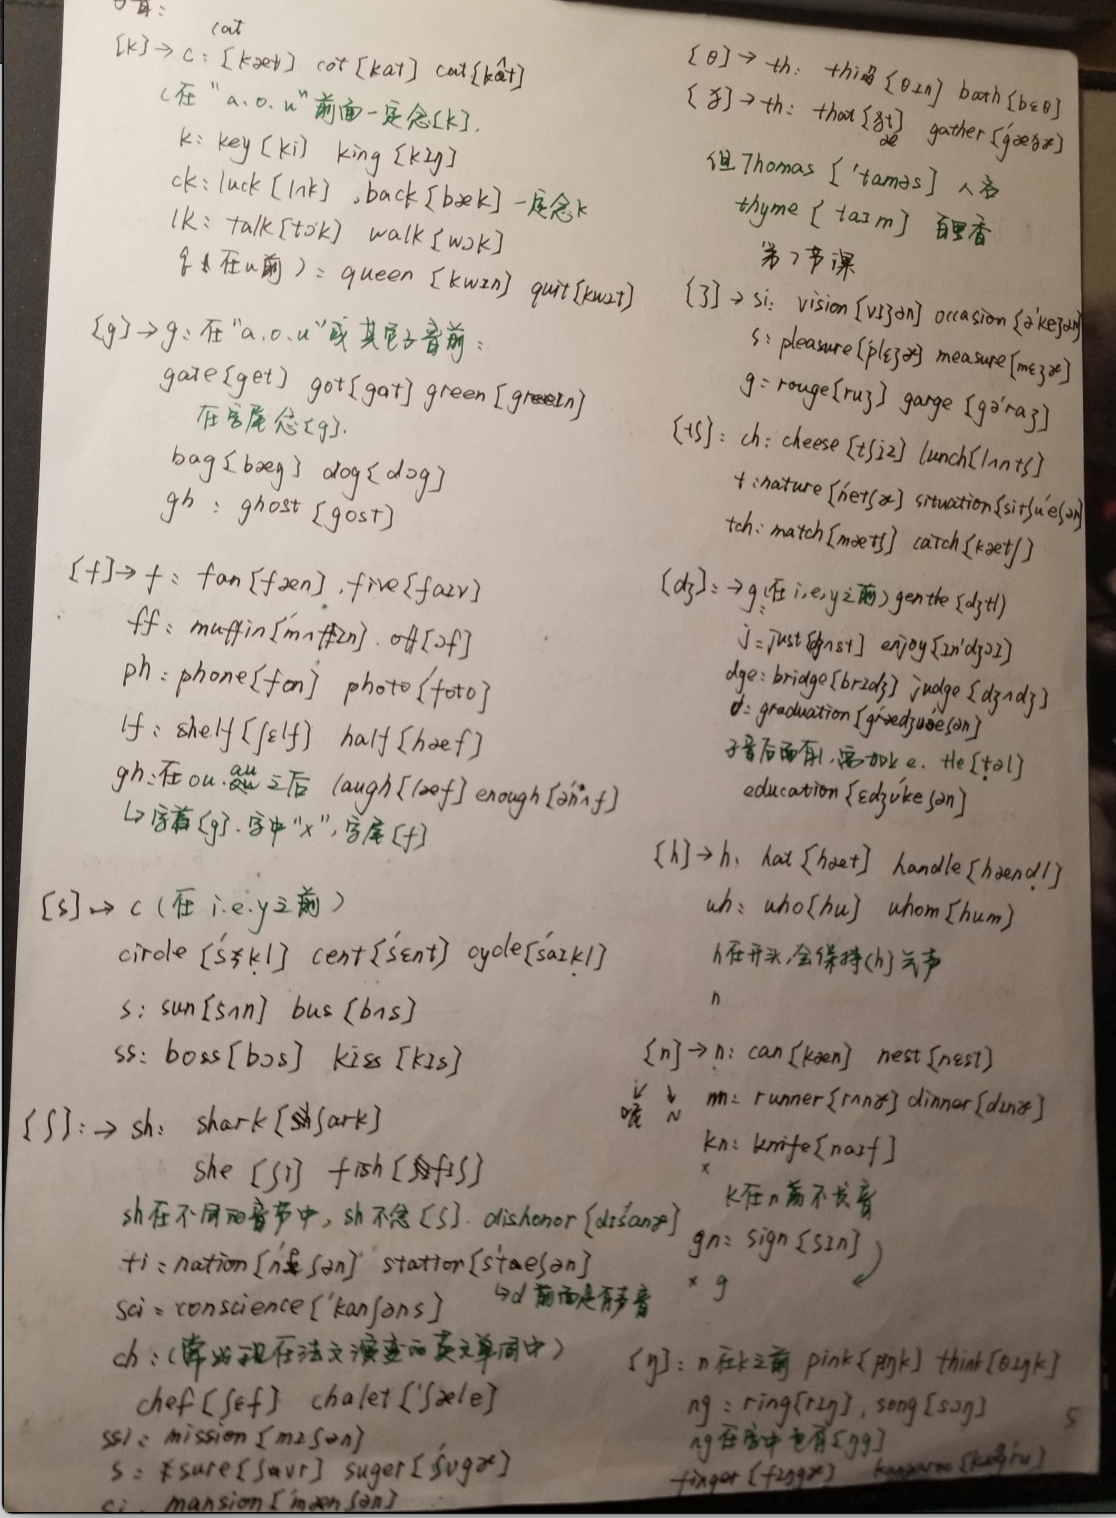 cat
[k]→ c: [kæt] cot [kat] cat[kæt]
(在"a.o.u"前面一定念[k].
k: key [ki] king [kɪŋ]
ck: luck [lʌk] , back [bæk] 一定念k
lk: talk [tɔk] walk [wɔk]
在u前): queen [kwɪn] quit[kwɪt]
[g]→ g: 在"a.o.u"或其它子音前:
gate[get] got[gat] green [grɪn]
在字尾念[g].
bag [bæg] dog [dɔg]
gh : ghost [gost]
[f]→ f: fan [fæn] , five [faɪv]
ff: muffin [mʌfɪn] . off [ɔf]
ph: phone [fon] photo [foto]
lf: shelf [ʃɛlf] half [hæf]
gh:在ou.au之后 laugh [læf] enough [ənʌf]
↳字首[g].字中"x",字尾[f]
[s]→ c (在 i.e.y之前)
circle [sɝkl] cent [sɛnt] cycle [saɪkl]
s: sun [sʌn] bus [bʌs]
ss: boss [bɔs] kiss [kɪs]
[ʃ]:→ sh: shark [ʃark]
she [ʃi] fish [fɪʃ]
sh在不同的音节中, sh不念[ʃ]. dishonor [dɪsanɚ]
ti: nation [neʃən] station [staeʃən]
↳d 前面是有声音
sci: conscience ['kanʃəns]
ch: (常出现在法文演变的英文单词中)
chef [ʃɛf] chalet ['ʃæle]
ssi: mission [mɪʃən]
s: sure [ʃavr] suger [ʃvgɚ]
ci mansion ['mænʃən]
[θ]→ th: thin [θɪn] bath [bɛθ]
[ð]→ th: that [ðæt] gather [gæðɚ]
但Thomas ['taməs] 人名
thyme [taɪm] 百里香
第7节课
[ʒ]→ si: vision [vɪʒən] occasion [ə'keʒən]
s: pleasure [plɛʒɚ] measure [mɛʒɚ]
g: rouge [ruʒ] garge [gə'raʒ]
[tʃ]: ch: cheese [tʃiz] lunch [lʌntʃ]
t: nature [netʃɚ] situation [sitʃueʃən]
tch: match [mætʃ] catch [kætʃ]
[dʒ]:→ g(在 i,e,y之前) gentle [dʒtl]
j: just [dʒʌst] enjoy [ɪn'dʒɔɪ]
dge: bridge [brɪdʒ] judge [dʒʌdʒ]
d: graduation [grædʒueʃən]
子音后面有l,需加上e. tle [təl]
education [ɛdʒukeʃən]
[h]→ h: hat [hæt] handle [hændl]
wh: who [hu] whom [hum]
h在开头,会保持[h]气声
n
[n]→ n: can [kæn] nest [nɛst]
nn: runner [rʌnɚ] dinner [dɪnɚ]
kn: knife [naɪf]
x
k在n前不发音
gn: sign [sɪn]
x g
[ŋ]: n在k之前 pink [pɪŋk] think [θɪŋk]
ng: ring [rɪŋ] , song [sɔŋ]
ng在字中也有[ŋg]
finger [fɪŋgɚ] kangaroo
5